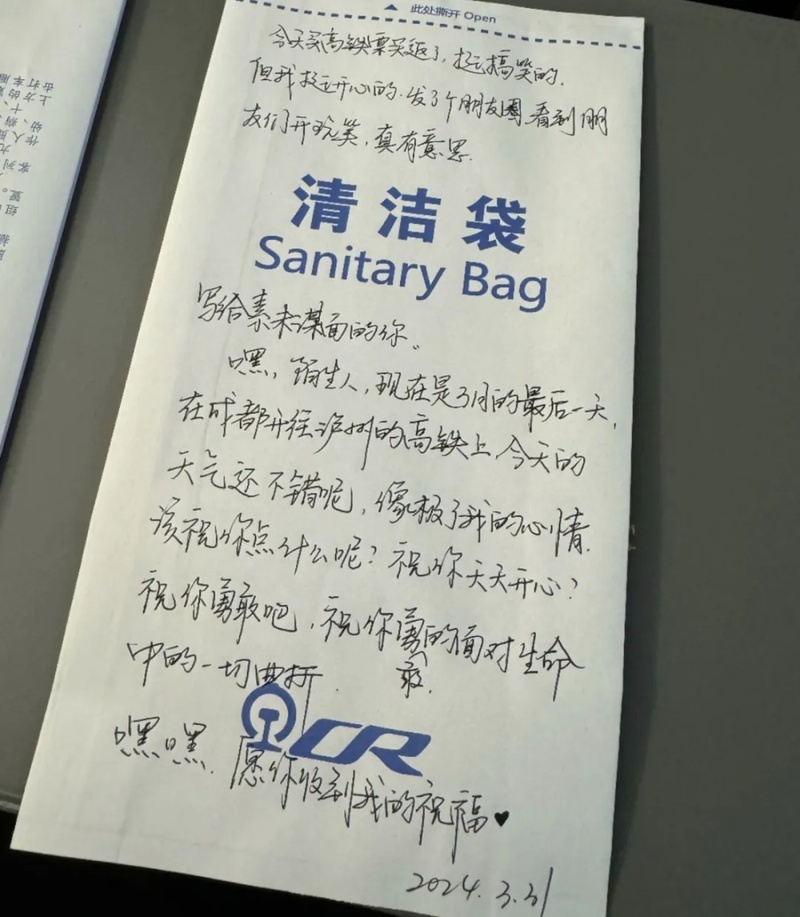 此处撕开 Open
今天买高铁票买返了,挺搞笑的.
但我挺开心的.发了个朋友圈,看到朋
友们开玩笑,真有意思.
清洁袋
Sanitary Bag
写给素未谋面的你.
嘿,陌生人,现在是3月的最后一天,
在成都开往泸州的高铁上,今天的
天气还不错呢,像极了我的心情.
该祝你点什么呢?祝你天天开心?
祝你勇敢吧,祝你勇敢的面对生命
中的一切曲折.
CR
嘿嘿.愿你收到我的祝福♥
2024.3.31